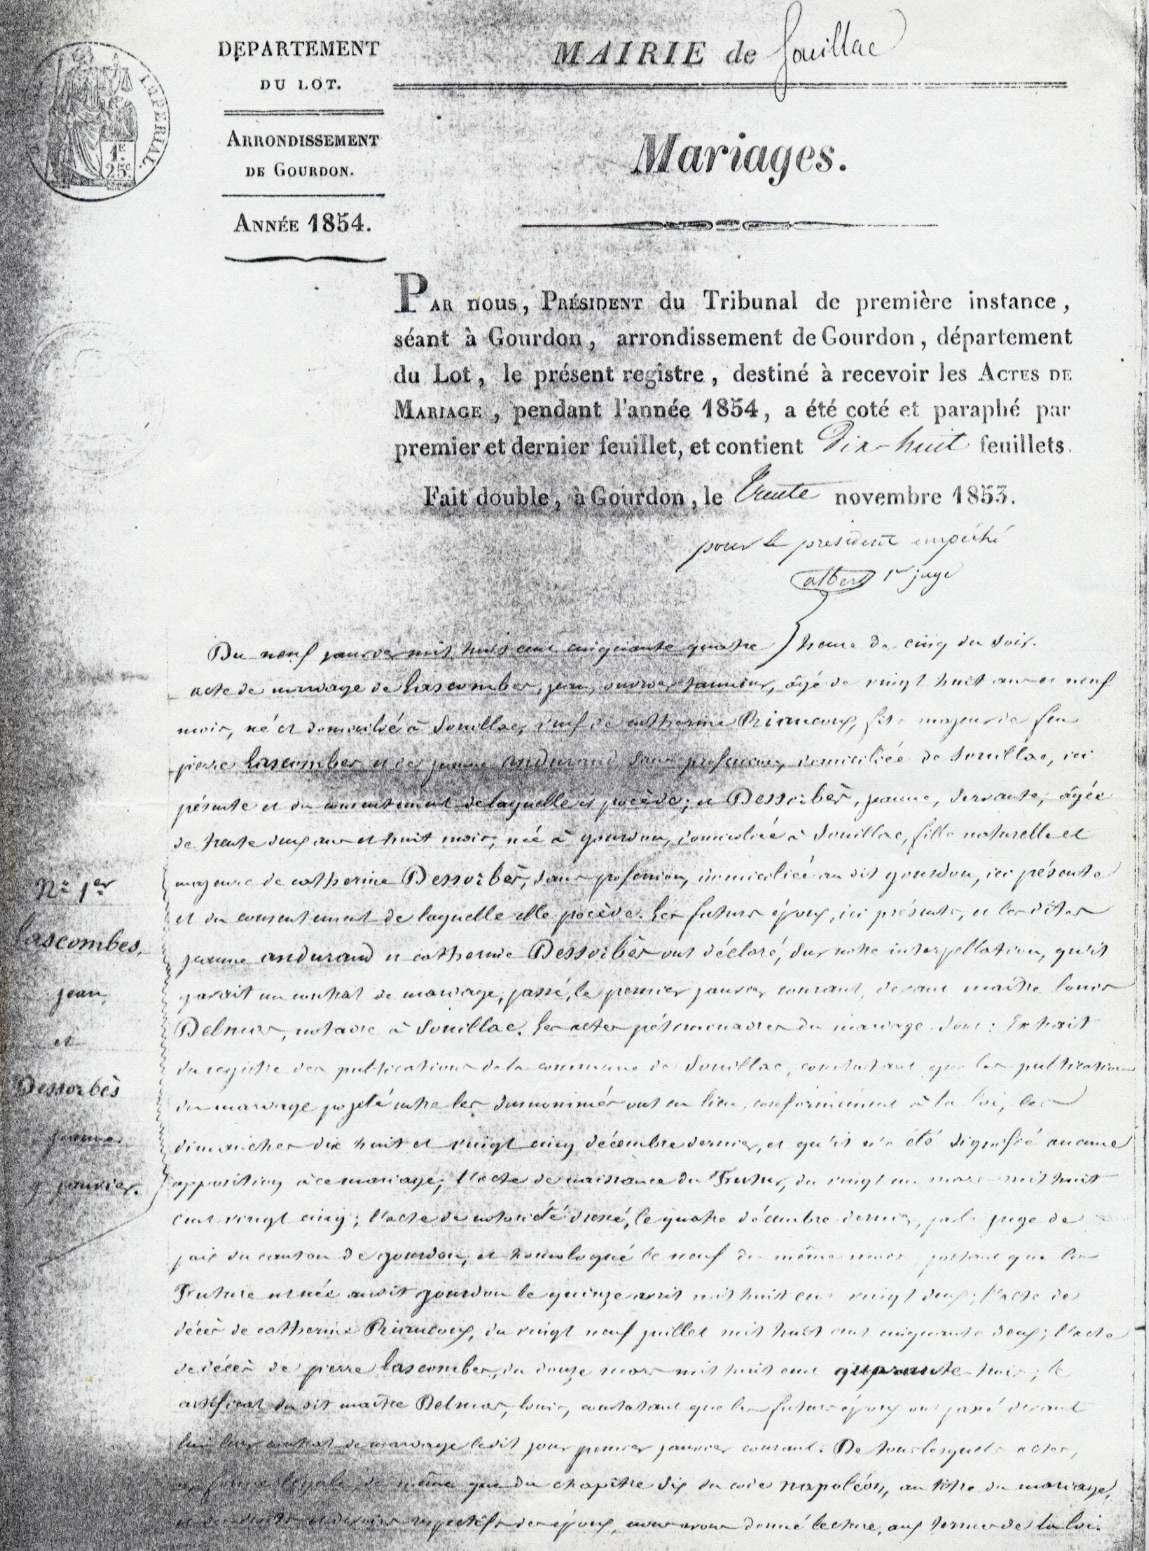 IMPERIAL.
1F.
25C.
DEPARTEMENT
DU LOT.
ARRONDISSEMENT
DE GOURDON.
ANNÉE 1854.
MAIRIE de Souillac
Mariages.
PAR nous, PRÉSIDENT du Tribunal de première instance,
séant à Gourdon, arrondissement de Gourdon, département
du Lot, le présent registre, destiné à recevoir les ACTES DE
MARIAGE, pendant l'année 1854, a été coté et paraphé par
premier et dernier feuillet, et contient Dix-huit feuillets.
Fait double, à Gourdon, le trente novembre 1853.
pour le président empêché
1er juge
N° 1er
Lascombes,
jean,
et
Dessorbès
jeanne
9 janvier.
Du neuf janvier mil huit cent cinquante quatre heure de cinq du soir.
acte de mariage de Lascombes, jean, âgé de vingt huit ans et neuf
mois, né et domicilié à Souillac, veuf de catherine fils majeur de feu
pierre Lascombes et de jeanne andurand sans profession, domiciliée de Souillac, ici
présente et du consentement de laquelle il procède; et Dessorbès, jeanne, servante, âgée
de trente deux ans et huit mois, née à gourdon, domiciliée à Souillac, fille naturelle et
majeure de catherine Dessorbès, sans profession, domiciliée au dit gourdon, ici présente
et du consentement de laquelle elle procède. Les futurs époux, ici présents, et les dites
jeanne andurand et catherine Dessorbès ont déclaré, sur notre interpellation, qu'il
y avait un contrat de mariage, passé, le premier janvier courant, devant maître louis
Delmas, notaire à Souillac. Les actes préliminaires du mariage sont: Extrait
du registre des publications de la commune de Souillac, constatant que les publications
du mariage projeté entre les susnommés ont eu lieu, conformément à la loi, les
dimanches dix huit et vingt cinq décembre dernier, et qu'il n'a été signifié aucune
opposition à ce mariage; l'acte de naissance du Futur, du vingt un mars mil huit
cent vingt cinq; l'acte de notoriété dressé, le quatre décembre dernier, par le juge de
paix du canton de gourdon, et homologué le neuf du même mois portant que la
Future est née audit gourdon le quinze avril mil huit cent vingt deux; l'acte de
décès de catherine du vingt neuf juillet mil huit cent cinquante deux; l'acte
de décès de pierre Lascombes, du douze mars mil huit cent quarante trois; le
certificat du dit maître Delmas, louis, constatant que les futurs époux ont passé devant
lui leur contrat de mariage ledit jour premier janvier courant. De tous lesquels actes,
en forme légale, de même que du chapitre six du code napoléon, au titre du mariage,
et des droits et devoirs respectifs des époux, nous avons donné lecture, aux termes de la loi.